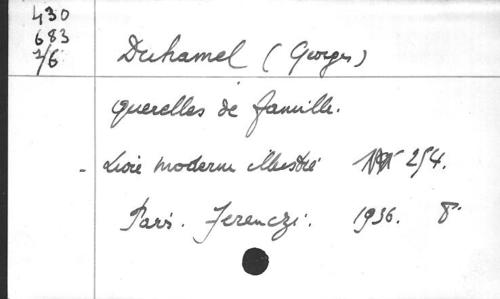 430
683
7/6
Duhamel (Georges)
querelles de famille.
- Livre moderne illustré 254.
Paris. Ferenczi. 1936. 8°